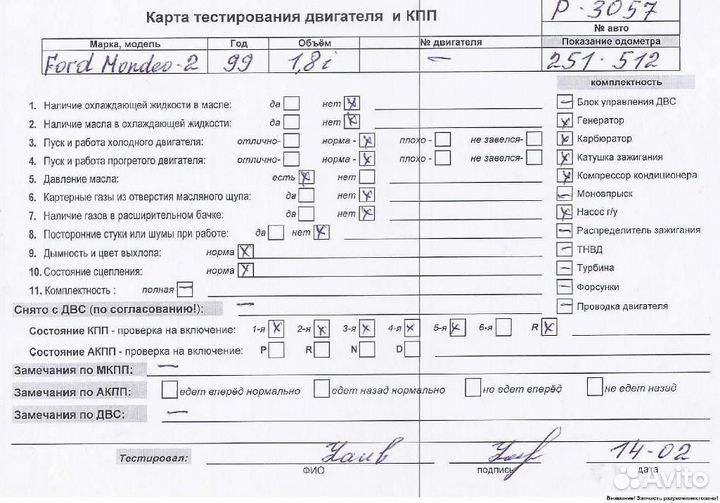 Карта тестирования двигателя и КПП
Р-3057
№ авто
Марка, модель Год Объём № двигателя Показание одометра
Ford Mondeo-2 99 1,8i — 251.512
комплектность
1. Наличие охлаждающей жидкости в масле: да нет
2. Наличие масла в охлаждающей жидкости: да нет
3. Пуск и работа холодного двигателя: отлично- норма - плохо - не завелся-
4. Пуск и работа прогретого двигателя: отлично- норма - плохо - не завелся-
5. Давление масла: есть нет
6. Картерные газы из отверстия масляного щупа: да нет
7. Наличие газов в расширительном бачке: да нет
8. Посторонние стуки или шумы при работе: да нет
9. Дымность и цвет выхлопа: норма
10. Состояние сцепления: норма
11. Комплектность : полная
Блок управления ДВС
Генератор
Карбюратор
Катушка зажигания
Компрессор кондиционера
Моновпрыск
Насос г/у
Распределитель зажигания
ТНВД
Турбина
Форсунки
Проводка двигателя
Снято с ДВС (по согласованию!): —
Состояние КПП - проверка на включение: 1-я 2-я 3-я 4-я 5-я 6-я R
Состояние АКПП - проверка на включение: P R N D
Замечания по МКПП: —
Замечания по АКПП: едет вперёд нормально едет назад нормально не едет вперёд не едет назад
Замечания по ДВС: —
Тестировал: 14-02
ФИО подпись дата
Внимание! Запчасть разукомплектована!
Avito